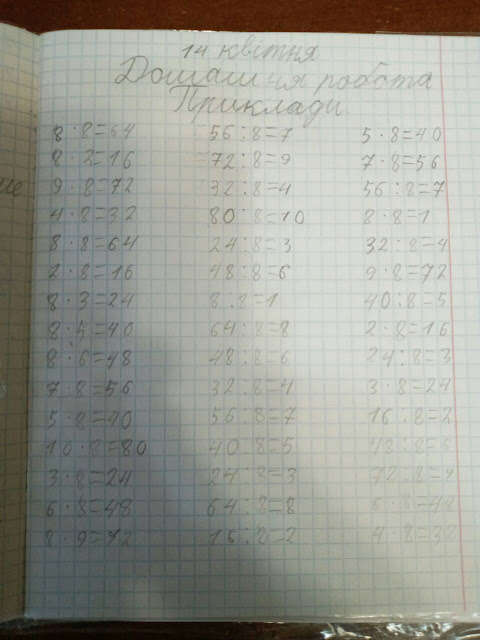 14 квітня
Домашня робота
Приклади
8 · 8 = 64 56 : 8 = 7 5 · 8 = 40
8 · 2 = 16 72 : 8 = 9 7 · 8 = 56
9 · 8 = 72 32 : 8 = 4 56 : 8 = 7
4 · 8 = 32 80 : 8 = 10 8 : 8 = 1
8 · 8 = 64 24 : 8 = 3 32 : 8 = 4
2 · 8 = 16 48 : 8 = 6 9 · 8 = 72
8 · 3 = 24 8 : 8 = 1 40 : 8 = 5
8 · 5 = 40 64 : 8 = 8 2 · 8 = 16
8 · 6 = 48 48 : 8 = 6 24 : 8 = 3
7 · 8 = 56 32 : 8 = 4 3 · 8 = 24
5 · 8 = 40 56 : 8 = 7 16 : 8 = 2
10 · 8 = 80 40 : 8 = 5 48 : 8 = 6
3 · 8 = 24 24 : 8 = 3 72 : 8 = 9
6 · 8 = 48 64 : 8 = 8 6 · 8 = 48
8 · 9 = 72 16 : 8 = 2 4 · 8 = 32